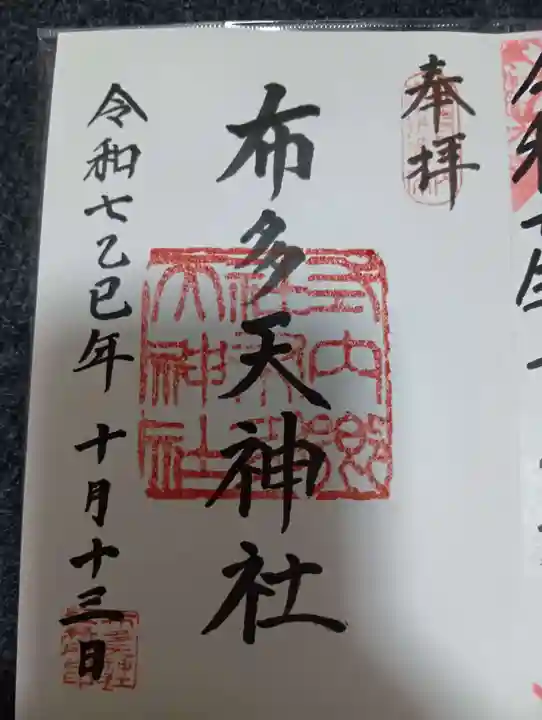 奉拝
布多天神社
令和七乙巳年十月十三日